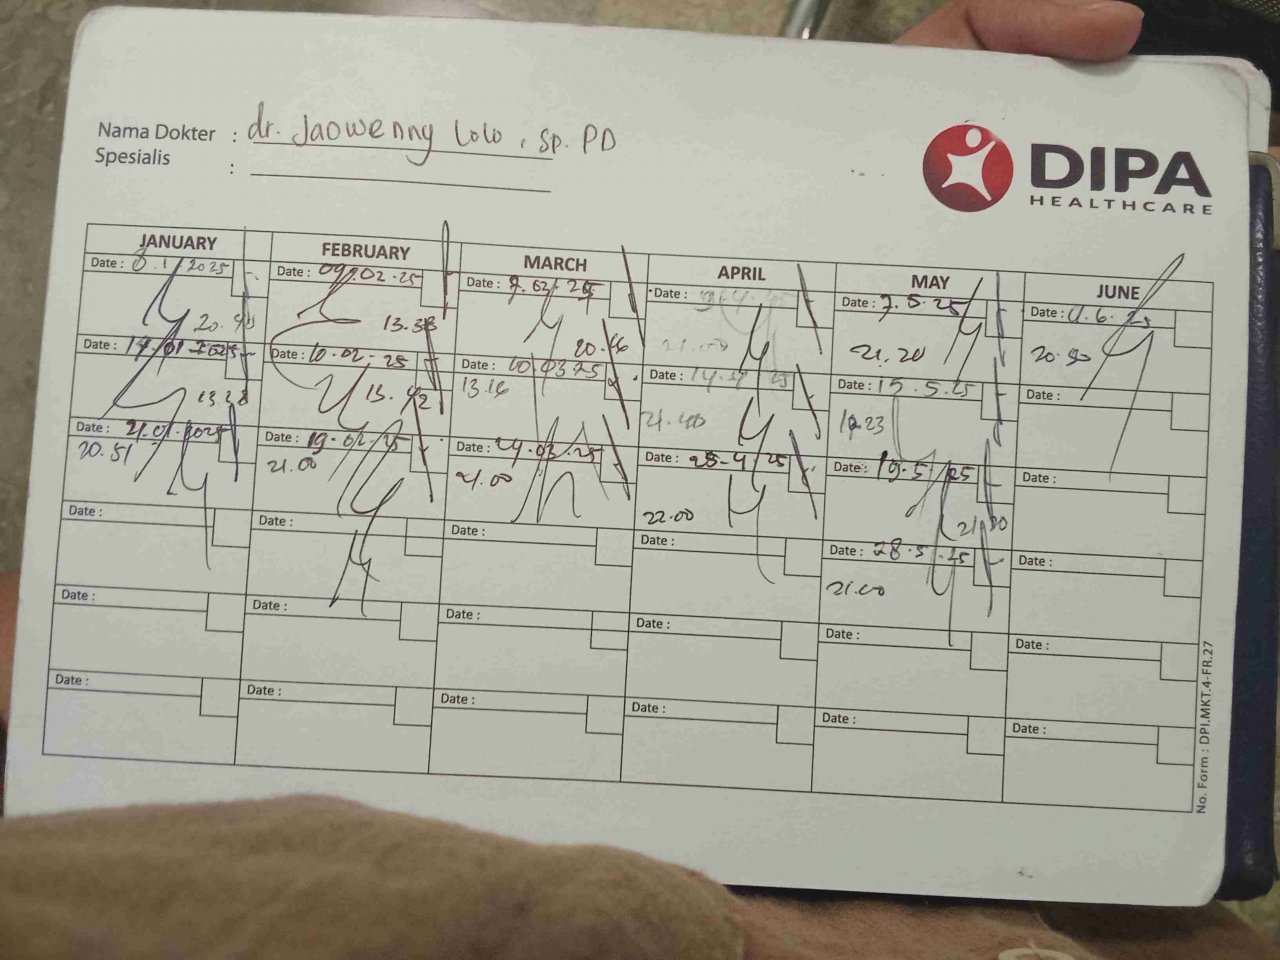 Nama Dokter : dr. Jaowenny Lolo, Sp. PD
Spesialis :
DIPA
HEALTHCARE
JANUARY FEBRUARY MARCH APRIL MAY JUNE
Date : 8.1.2025
20.40
Date : 14.01.2025
13.28
Date : 21.01.2025
20.51
Date :
Date :
Date :
Date : 09.02.25
13.38
Date : 10.02.25
13.42
Date : 19.02.25
21.00
Date :
Date :
Date :
Date :
20.46
Date : 10.03.25
13.16
Date : 24.03.25
21.00
Date :
Date :
Date :
Date :
21.00
Date :
21.40
Date : 25.4.25
22.00
Date :
Date :
Date :
Date : 7.5.25
21.20
Date : 15.5.25
Date : 19.5.25
21.00
Date : 28.5.25
21.00
Date :
Date :
Date : 11.6.25
Date :
Date :
Date :
Date :
Date :
No. Form : DPI.MKT.4-FR.27